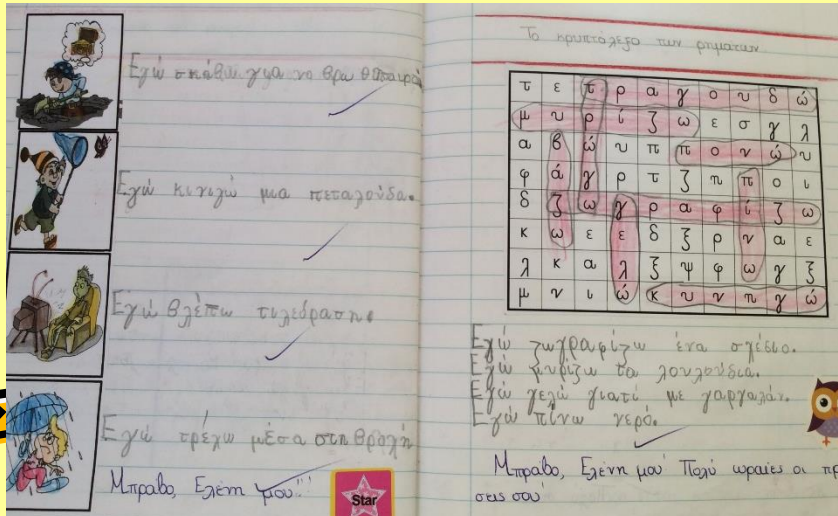 Εγώ σκάβω για να βρω
Εγώ κινιγώ μια πεταλούδα.
Εγώ βλέπω τιλεόραση.
Εγώ τρέχω μέσα στη βροχή
Μπράβο, Ελένη μου!!
Star
Το κρυπτόλεξο των ρημάτων
τ ε τ ρ α γ ο υ δ ώ
μ υ ρ ί ζ ω ε σ γ λ
α β ώ υ π π ο ν ώ υ
φ ά γ ρ τ ζ η π ο ι
δ ζ ω γ ρ α φ ί ζ ω
κ ω ε ε δ ζ ρ ν α ε
λ κ α λ ξ ψ φ ω γ ξ
μ ν ι ώ κ υ ν η γ ώ
Εγώ ζωγραφίζω ένα σχέδιο.
Εγώ μυρίζω τα λουλούδια.
Εγώ γελώ γιατί με γαργαλάν.
Εγώ πίνω νερό.
Μπράβο, Ελένη μου! Πολύ ωραίες οι πρ
σεις σου!